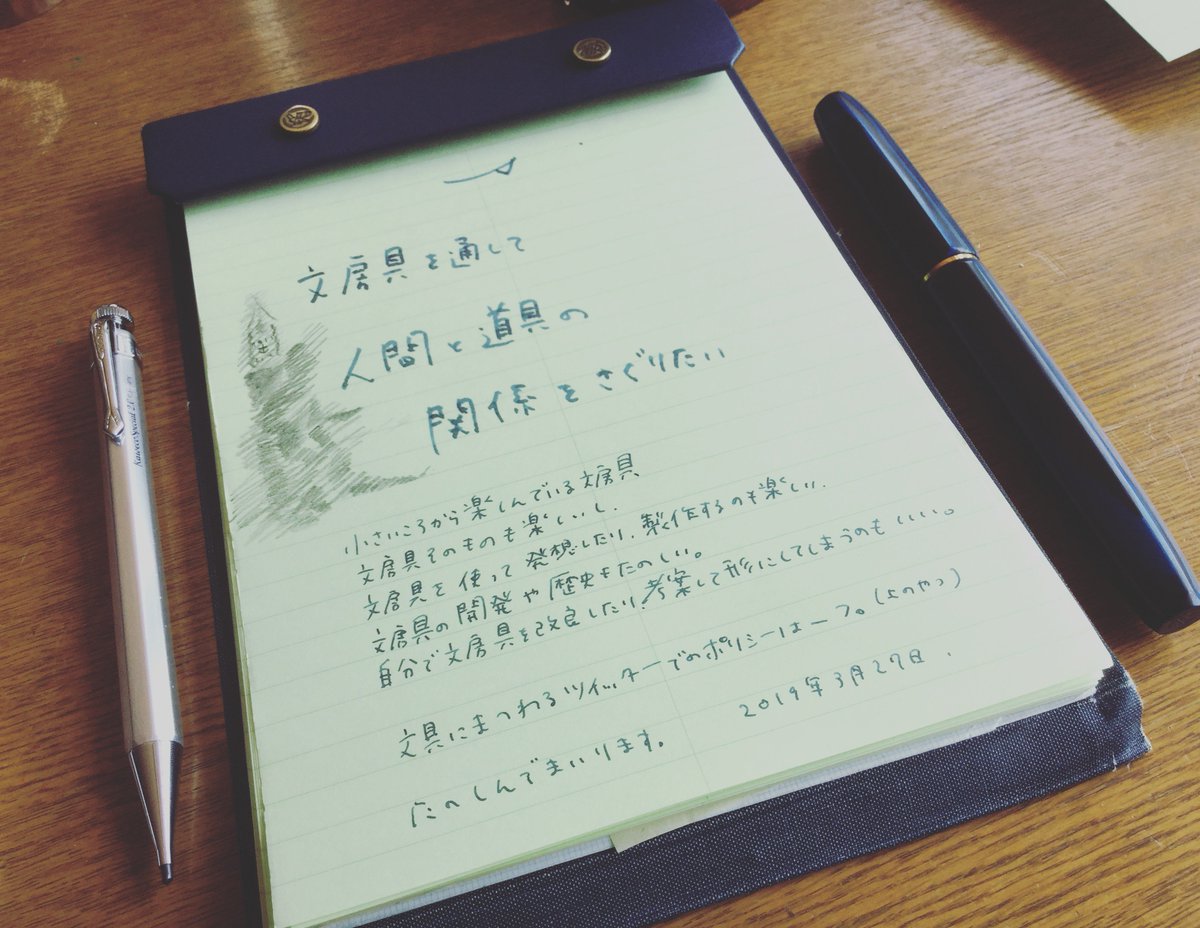 文房具を通して
人間と道具の
関係をさぐりたい
小さいころから楽しんでいる文房具
文房具そのものも楽しいし、
文房具を使って発想したり、製作するのも楽しい.
文房具の開発や歴史もたのしい。
自分で文房具を改良したり考案して形にしてしまうのもいい。
文具にまつわるツイッターでのポリシーは一つ。(上のやつ)
2019年3月27日.
たのしんでまいります。
Kaweco Special 2.0